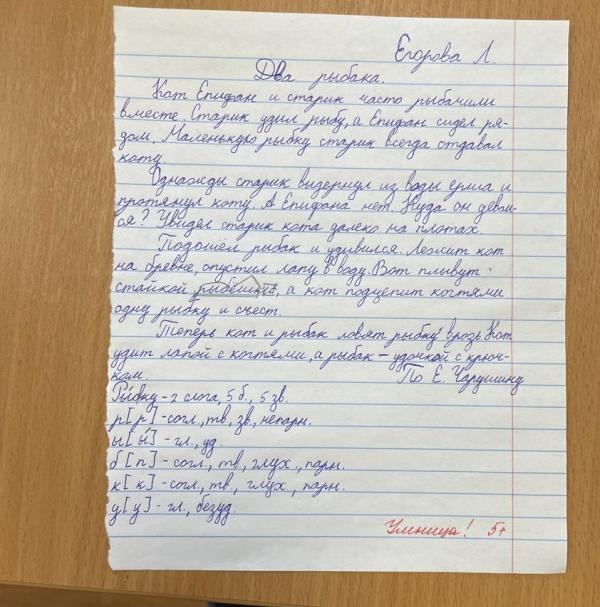 Егорова Л.
Два рыбака.
Кот Епифан и старик часто рыбачили
вместе. Старик удил рыбу, а Епифан сидел ря-
дом. Маленькую рыбку старик всегда отдавал
коту.
Однажды старик выдернул из воды ерша и
протянул коту. А Епифана нет. Куда он девал-
ся? Увидел старик кота далеко на плотах.
Подошёл рыбак и удивился. Лежит кот
на бревне, опустил лапу в воду. Вот плывут
стайкой рыбёшки, а кот подцепит когтями
одну рыбку и съест.
Теперь кот и рыбак ловят рыбку врозь. Кот
удит лапой с когтями, а рыбак – удочкой с крюч-
ком. По Е. Чарушину
Ры́бку - 2 слога, 5 б., 5 зв.
р [р] - согл., тв, зв, непарн.
ы [ы́] - гл., уд.
б [п] - согл., тв, глух., парн.
к [к] - согл., тв, глух, парн.
у [у] - гл., безуд.
Умница! 5+